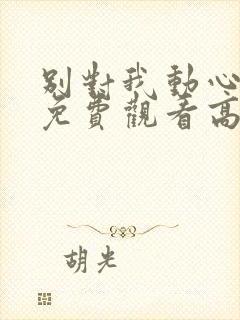 別對我動心
免費觀看高
胡光